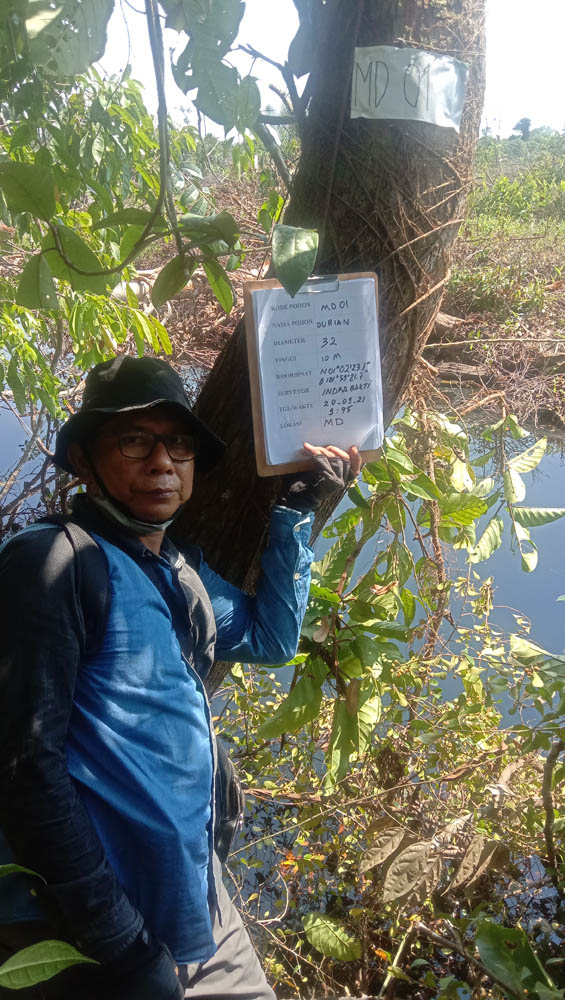 MD 01
KODE POHON MD 01
NAMA POHON DURIAN
DIAMETER 32
TINGGI 10 M
KOORDINAT N01°02'23,1"
SURVEYOR INDRA BAKTI
TGL/WAKTU 20-09-21
9:45
LOKASI MD